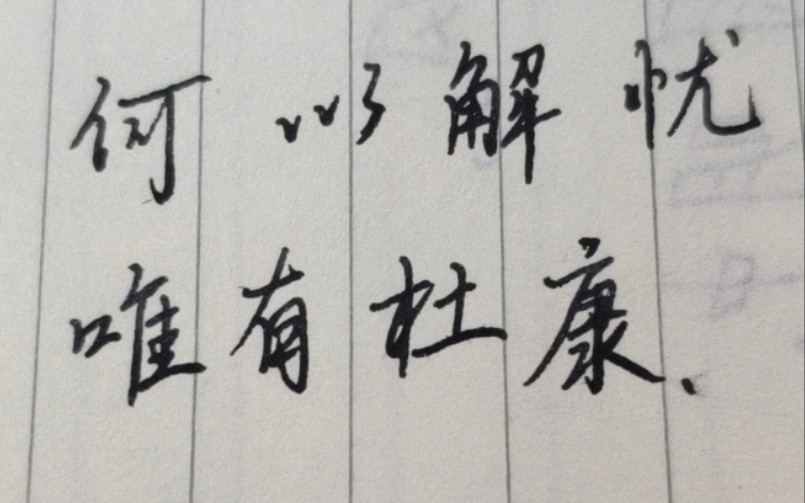 何以解忧
唯有杜康.